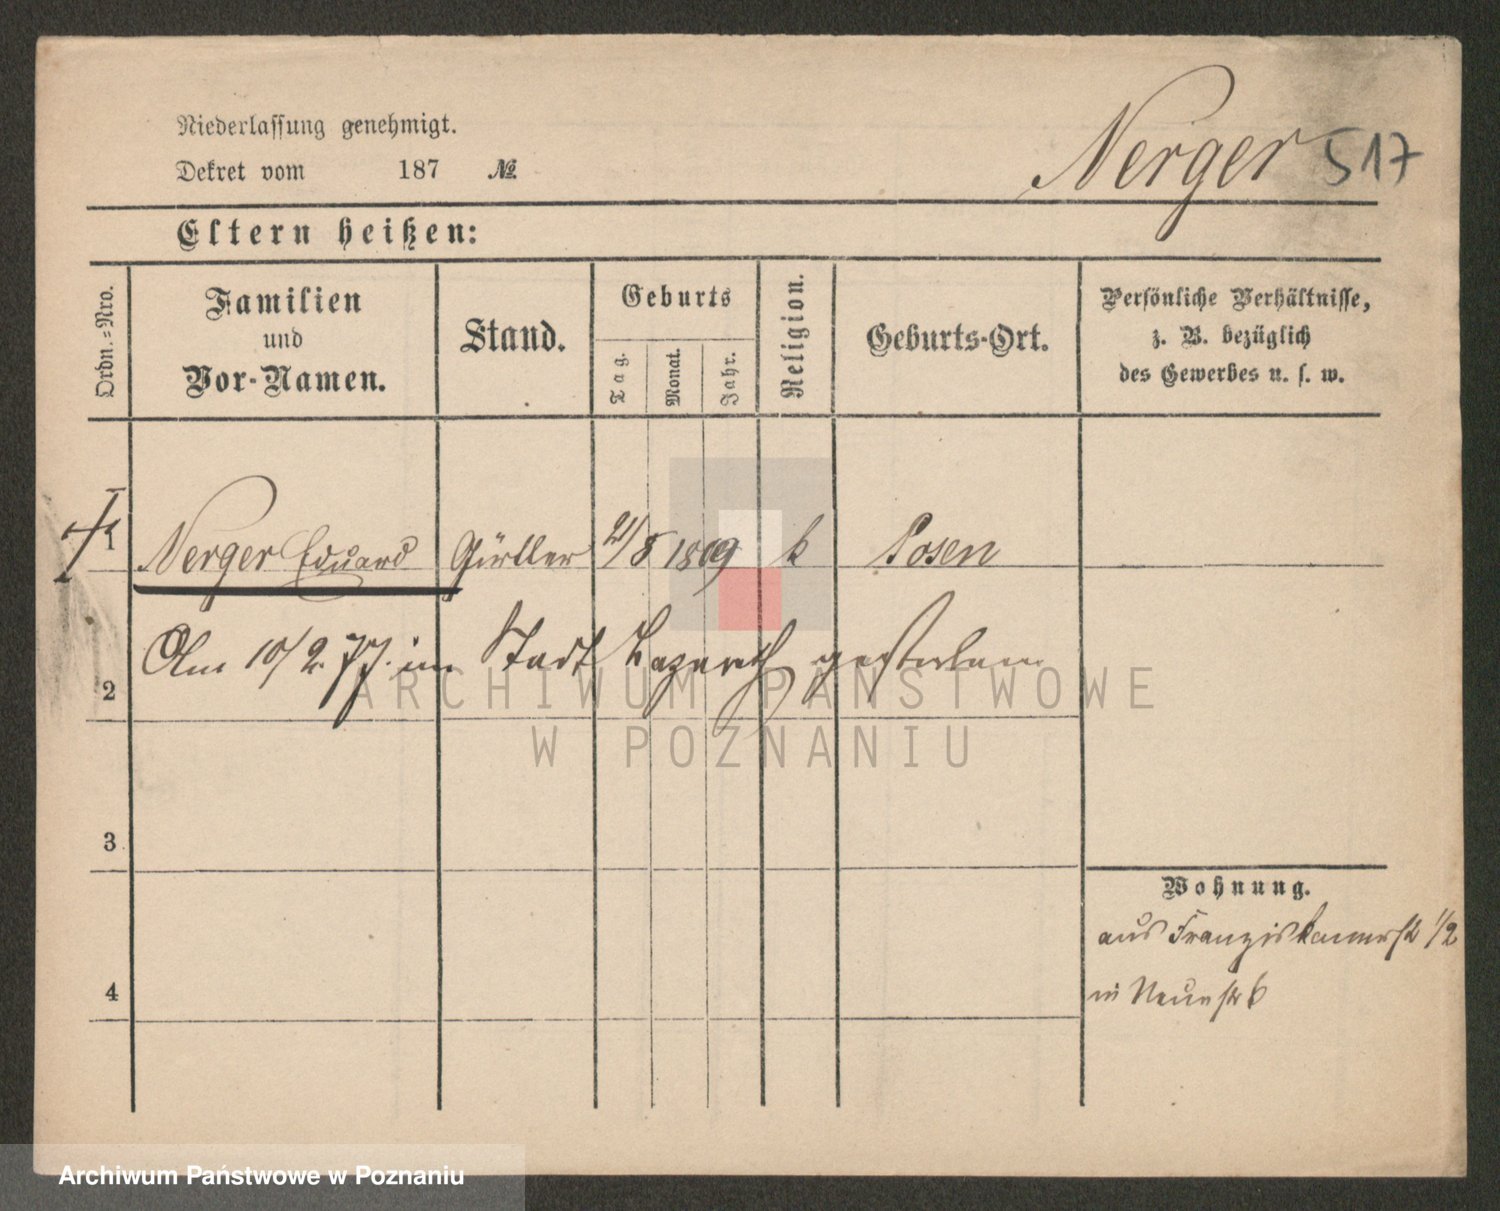 Niederlassung genehmigt.
Nerger 517
Dekret vom 187 №
Eltern heißen:
Ordn.=Nro.
Familien
und
Vor-Namen.
Stand.
Geburts
Tag.
Monat.
Jahr.
Religion.
Geburts-Ort.
Persönliche Verhältnisse,
z. B. bezüglich
des Gewerbes u. s. w.
1 Nerger Eduard Gürtler 21/8 1809 k Posen
Am 10/2 77. im Stadt Lazareth gestorben
2
3
Wohnung.
aus Franziskanerstr 1/2
4
in Neuestr 6
ARCHIWUM PAŃSTWOWE
W POZNANIU
Archiwum Państwowe w Poznaniu